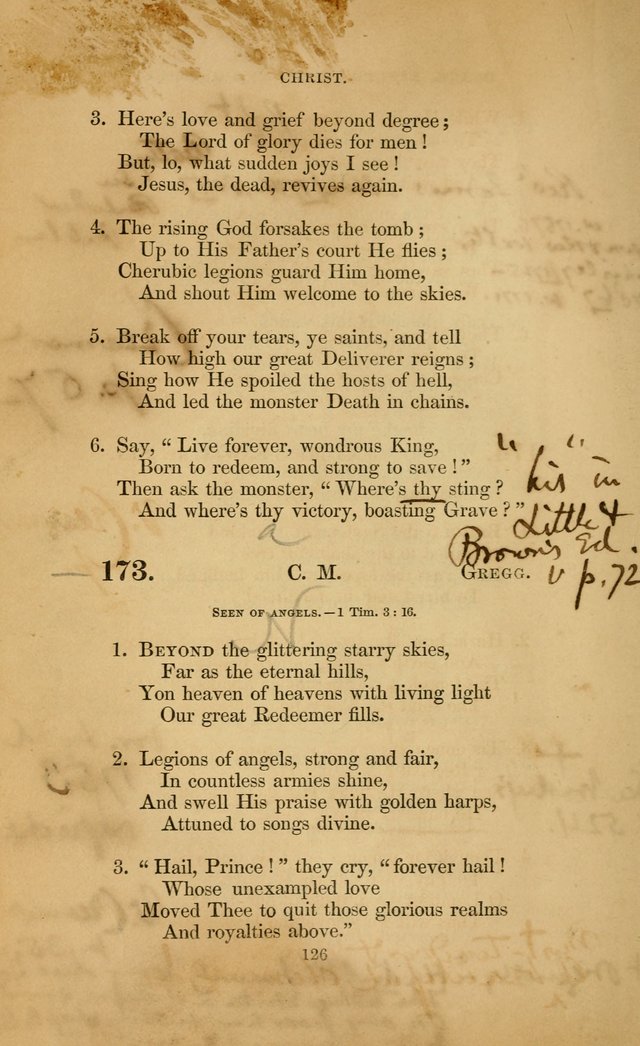 CHRIST.
3. Here's love and grief beyond degree;
The Lord of glory dies for men!
But, lo, what sudden joys I see!
Jesus, the dead, revives again.
4. The rising God forsakes the tomb;
Up to His Father's court He flies;
Cherubic legions guard Him home,
And shout Him welcome to the skies.
5. Break off your tears, ye saints, and tell
How high our great Deliverer reigns;
Sing how He spoiled the hosts of hell,
And led the monster Death in chains.
6. Say, "Live forever, wondrous King,
Born to redeem, and strong to save!"
Then ask the monster, "Where's thy sting?
And where's thy victory, boasting Grave?"
" , "
his in
Little &
Brown's Ed.
v p. 72
a
173. C. M. GREGG.
SEEN OF ANGELS.—1 Tim. 3:16.
N
1. BEYOND the glittering starry skies,
Far as the eternal hills,
Yon heaven of heavens with living light
Our great Redeemer fills.
2. Legions of angels, strong and fair,
In countless armies shine,
And swell His praise with golden harps,
Attuned to songs divine.
3. "Hail, Prince!" they cry, "forever hail!
Whose unexampled love
Moved Thee to quit those glorious realms
And royalties above."
126